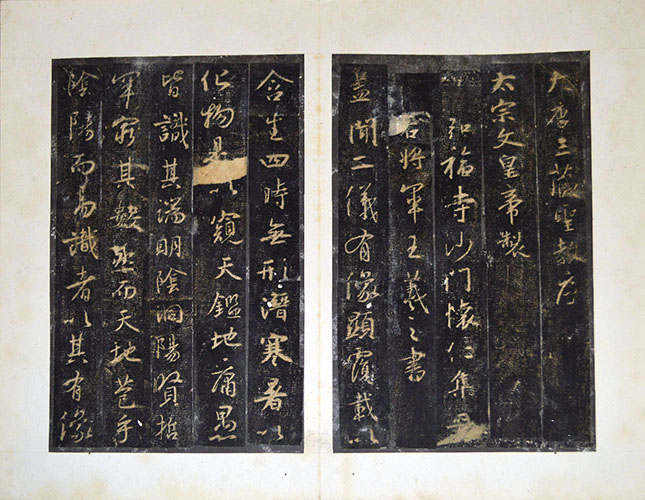 大唐三藏聖教序
太宗文皇帝製
弘福寺沙門懷仁集
右將軍王羲之書
蓋聞二儀有像顯覆載以
含生四時無形潛寒暑以
化物是以窺天鑑地庸愚
皆識其端明陰洞陽賢哲
罕窮其數然而天地苞乎
陰陽而易識者以其有像